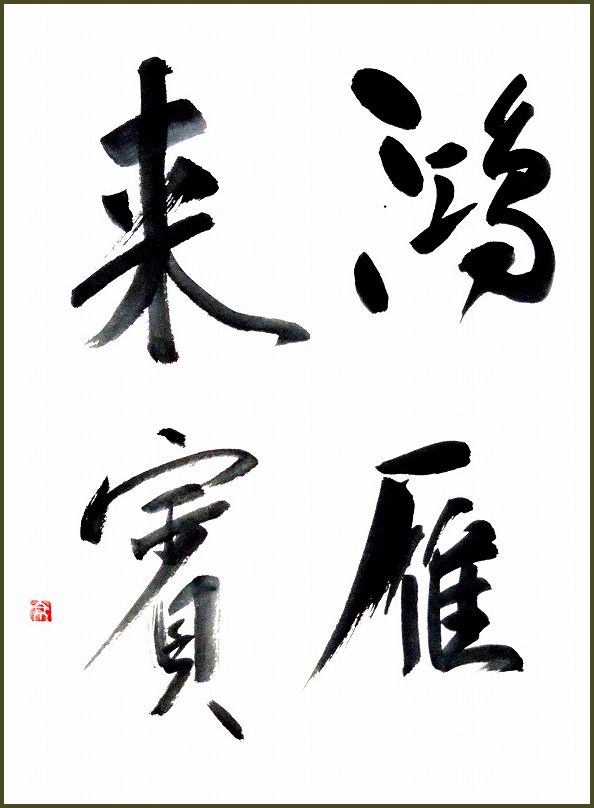 鴻雁
来賓